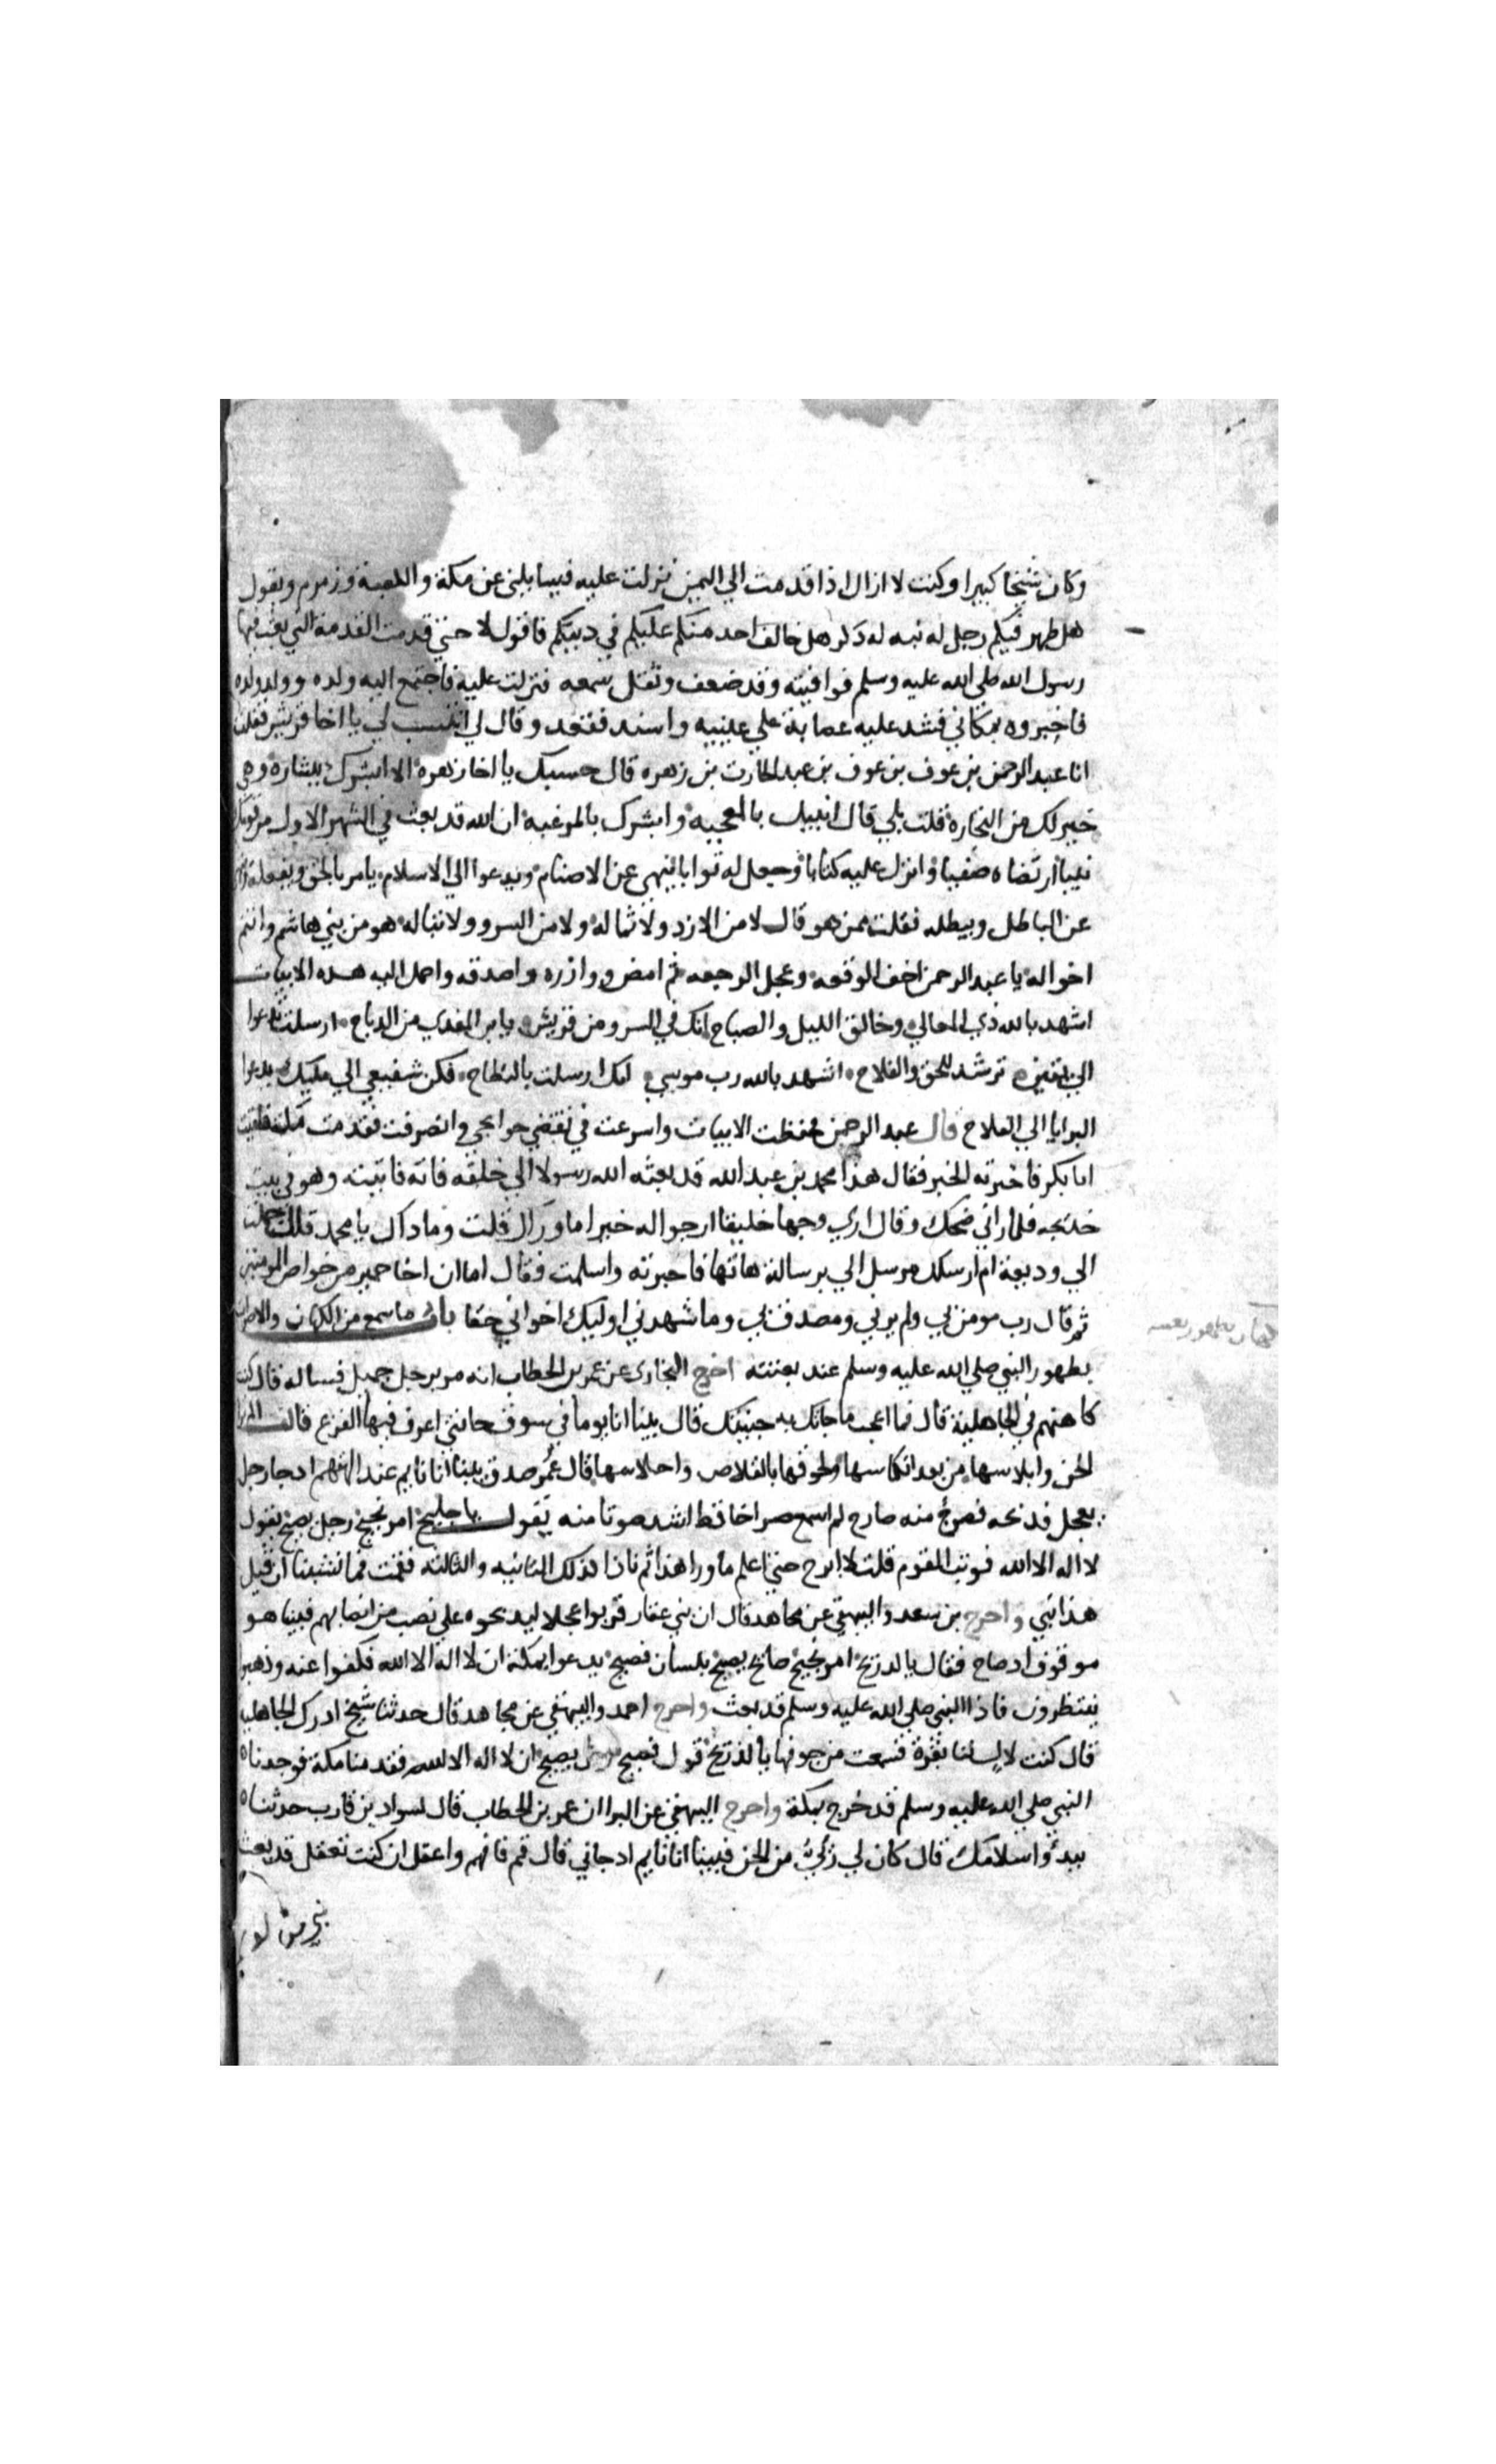 وكان شيخا كبيرا وكنت لا ازال اذا قدمت الي اليمن نزلت عليه فيسايلني عن مكة والكعبة وزمزم ويقول
هل ظهر فيكم رجل له نبه له ذكر هل خالف احد منكم عليكم في دينكم فاقول لا حتي قدمت القدمة التي بعث فيها
رسول الله صلي الله عليه وسلم فوافيته وقد ضعف وثقل سمعه فنزلت عليه فاجتمع اليه ولده وولد ولده
فاخبروه بمكاني فشد عليه عصابة علي عينيه واسند فقعد وقال لي انتسب لي يا اخا قريش فقلت
انا عبد الرحمن بن عوف بن عوف بن عبد الحارث بن زهره قال حسبك يا اخا زهرة الا ابشرك ببشارة وهي
خير لك من التجارة قلت بلي قال انبيك بالمعجبه وابشرك بالمرغبة ان الله قد بعث في الشهر الاول من قومك
نبيا ارتضاه صفيا وانزل عليه كتابا وجعل له ثوابا ينهي عن الاصنام ويدعوا الي الاسلام يامر بالحق ويفعله
عن الباطل ويبطله فقلت ممن هو قال لا من الازد ولا ثماله ولا من السرو ولا تباله هو من بني هاشم وانتم
اخواله يا عبد الرحمن اخف الوقعه وعجل الرجعه ثم امض ووازره واصدقه واحمل اليه هذه الابيات
اشهد بالله ذي المعالي وخالق الليل والصباح انك في السرو من قريش يا بن المفدي من الذباح ارسلت تدعوا
الي يقين ترشد للحق والفلاح اشهد بالله رب موسي انك ارسلت بالبطاح فكن شفيعي الي مليك يدعوا
البرايا الي الفلاح قال عبد الرحمن فحفظت الابيات واسرعت في تقضي حوايجي وانصرفت فقدمت مكة فلقيت
ابا بكر فاخبرته الخبر فقال هذا محمد بن عبد الله قد بعثه الله رسولا الي خلقه فاته فاتيته وهو في بيت
خديجه فلما راني ضحك وقال اري وجها خليقا ارجوا له خيرا ما وراك قلت وما ذاك يا محمد قال حملت
الي وديعة ام ارسلك مرسل الي برسالة هاتها فاخبرته واسلمت فقال اما ان اخا حمير من خواص المومنين
ثم قال رب مومن بي ولم يرني ومصدق بي وما شهدني اوليك اخواني حقا باب ما سمع من الكهان والاصوات
بظهور النبي صلي الله عليه وسلم عند بعثته اخرج البخاري عن عمر بن الخطاب انه مر برجل جميل فساله قال كنت
كاهنهم في الجاهلية قال فما اعجب ما جاتك به جنيتك قال بينا انا يوما في سوق جاتني اعرف فيها الفزع قالت الم تر
الجن وابلاسها من بعد انكاسها ولحوقها بالقلاص واحلاسها قال عمر صدق بينا انا نايم عند الهتهم اذ جا رجل
بعجل فذبحه فصرخ منه صارخ لم اسمع صراخا قط اشد صوتا منه يقول يا جليح امر نجيح رجل يصيح يقول
لا اله الا الله فوثب القوم قلت لا ابرح حتي اعلم ما ورا هذا ثم نادا كذلك الثانيه والثالثه فقمت فما نشبنا ان قيل
هذا نبي واخرج بن سعد والبيهقي عن مجاهد قال ان بني غفار قربوا عجلا ليذبحوه علي نصب من انصابهم فبينا هو
موقوف اذ صاح فقال يا لذريح امر نجيح صايح يصيح بلسان فصيح يدعوا بمكة ان لا اله الا الله فكفوا عنه وذهبوا
ينتظرون فاذا النبي صلي الله عليه وسلم قد بعث واخرج احمد والبيهقي عن مجاهد قال حدثنا شيخ ادرك الجاهليه
قال كنت لال لنا بقرة فسمعت من جوفها يا لذريح قول فصيح يصيح ان لا اله الا الله فقدمنا مكة فوجدنا
النبي صلي الله عليه وسلم قد خرج بمكة واخرج البيهقي عن البرا ان عمر بن الخطاب قال لسواد بن قارب حدثنا
ببدؤ اسلامك قال كان لي رئي من الجن فبينا انا نايم اذ جاني قال قم فافهم واعقل ان كنت تعقل قد بعث